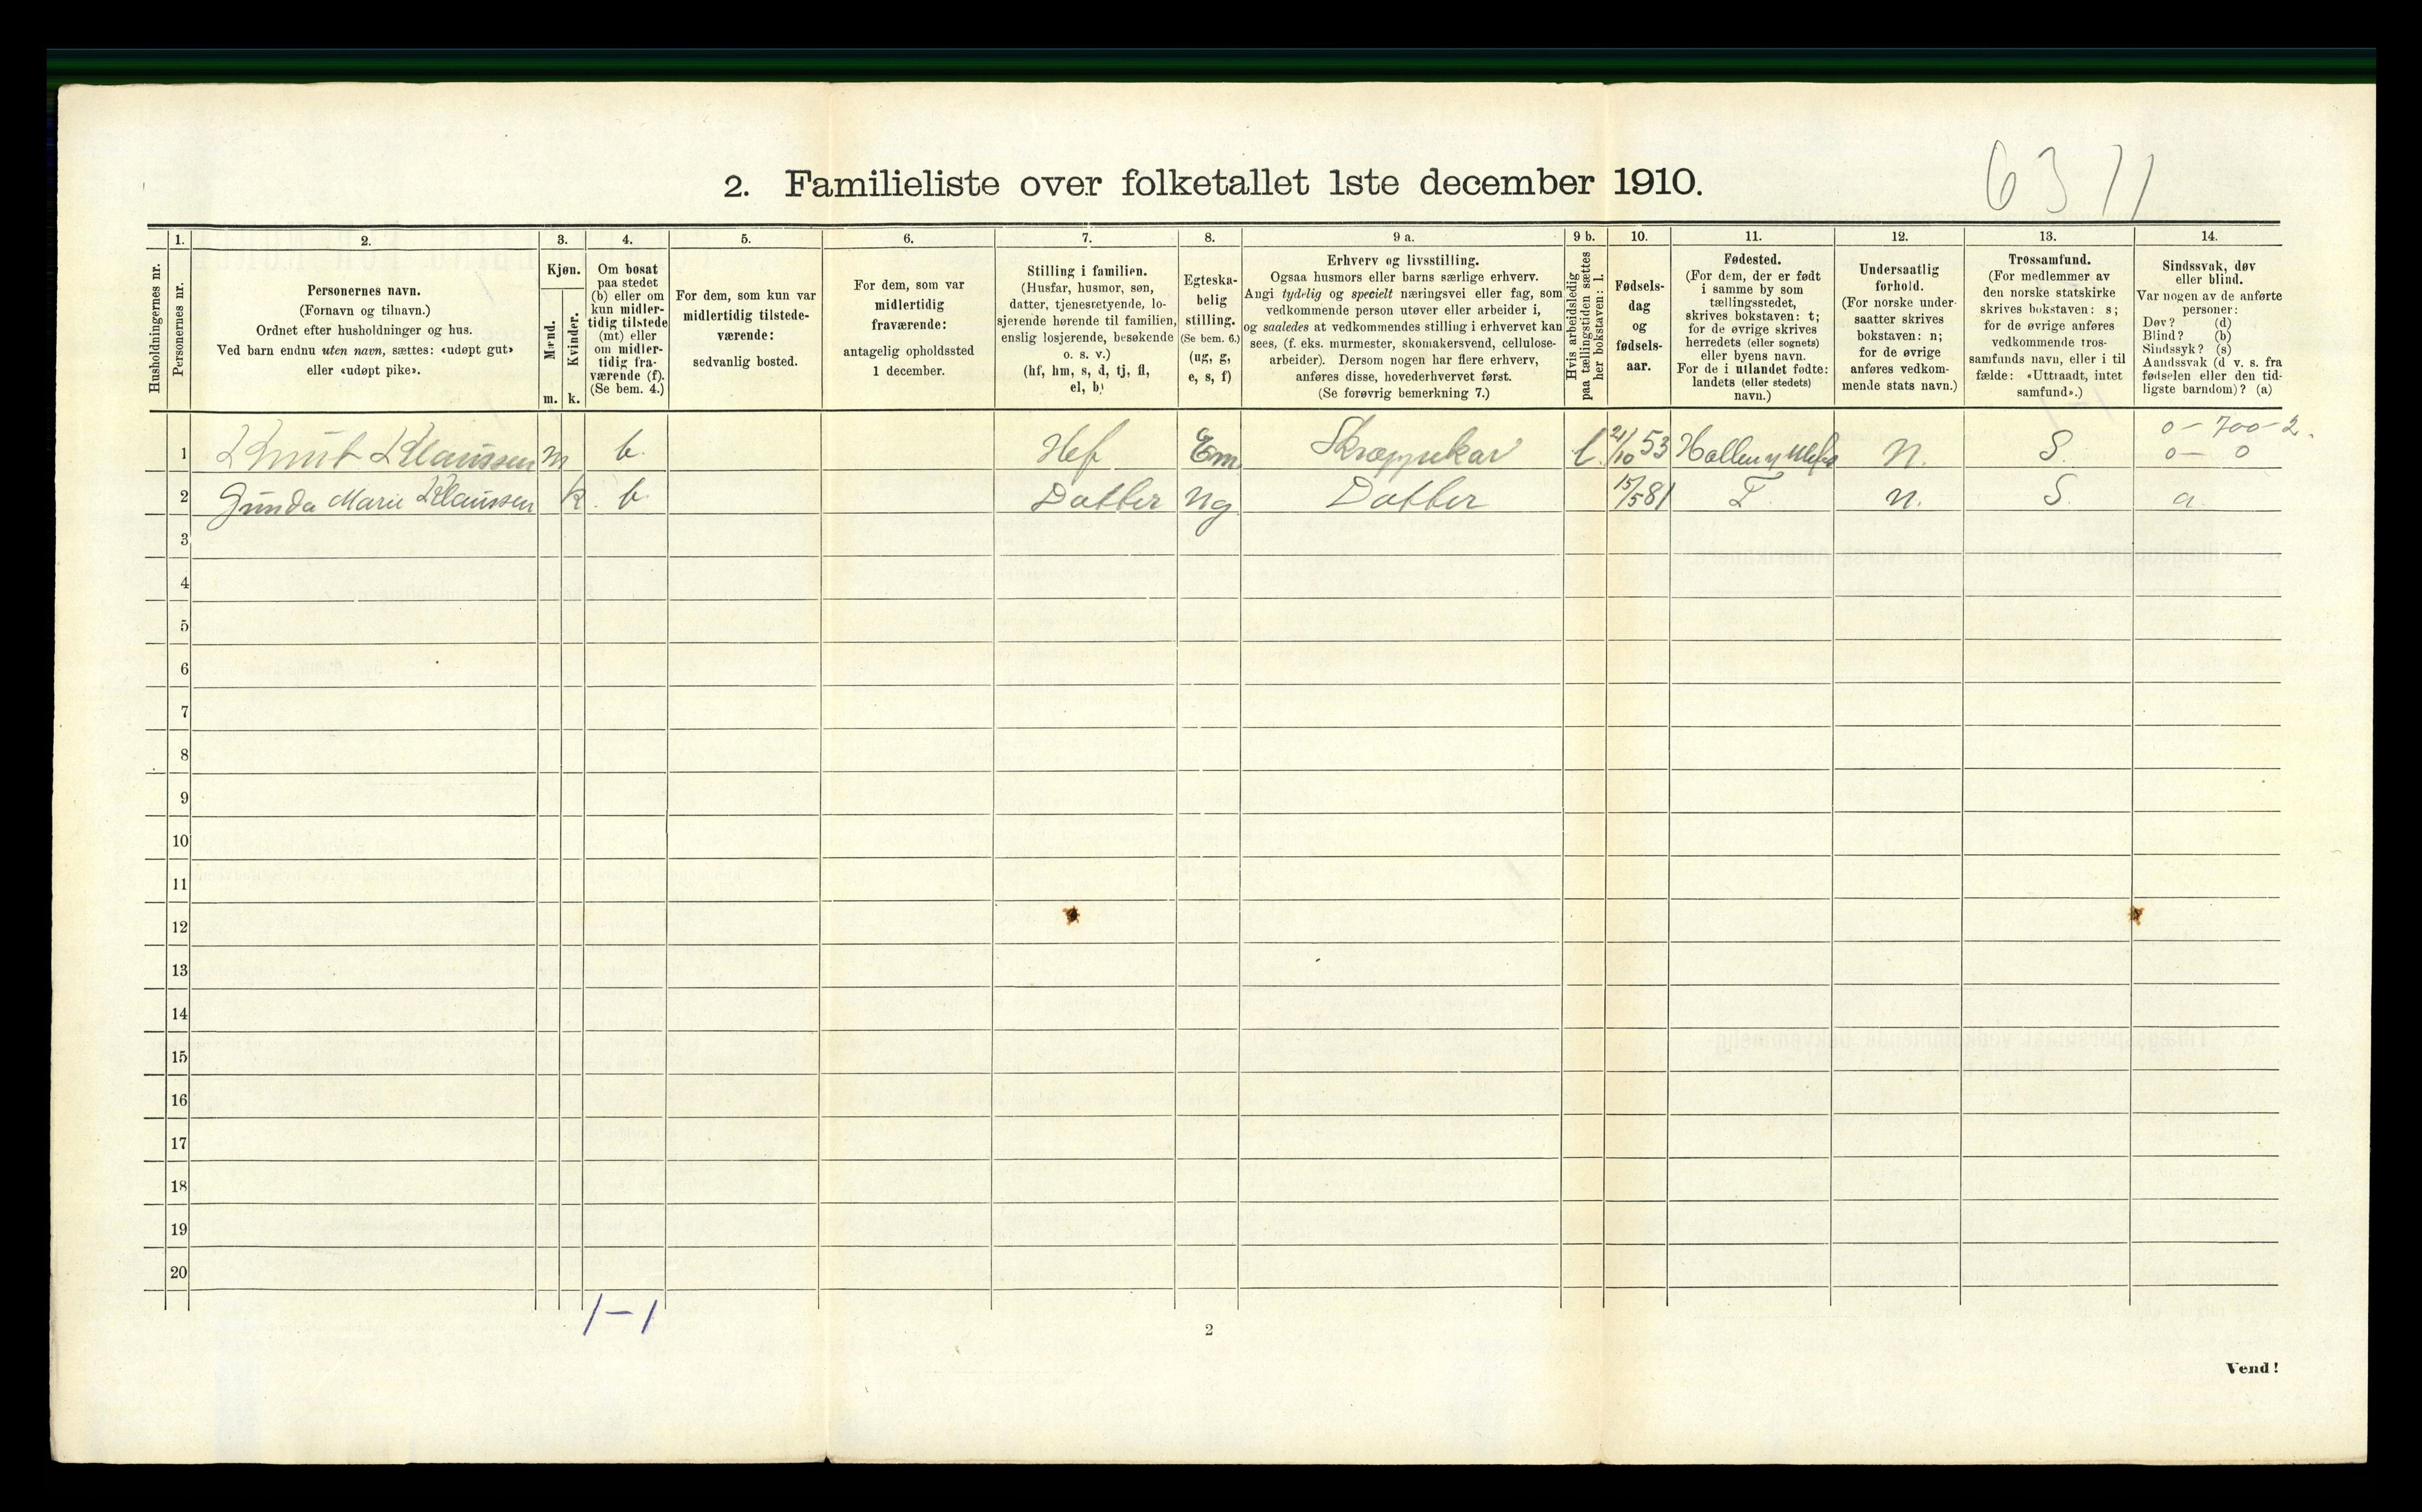 2. Familieliste over folketallet 1ste december 1910.
6311
Husholdningernes nr.
1. Personernes nr.
2. Personernes navn.
(Fornavn og tilnavn.)
Ordnet efter husholdninger og hus.
Ved barn endnu uten navn, sættes: «udøpt gut»
eller «udøpt pike».
3. Kjøn.
Mænd. m.
Kvinder. k.
4. Om bosat
paa stedet
(b) eller om
kun midler-
tidig tilstede
(mt) eller
om midler-
tidig fra-
værende (f).
(Se bem. 4.)
5. For dem, som kun var
midlertidig tilstede-
værende:
sedvanlig bosted.
6. For dem, som var
midlertidig
fraværende:
antagelig opholdssted
1 december.
7. Stilling i familien.
(Husfar, husmor, søn,
datter, tjenestetyende, lo-
sjerende hørende til familien,
enslig losjerende, besøkende
o. s. v.)
(hf, hm, s, d, tj, fl,
el, b)
8. Egteska-
belig
stilling.
(Se bem. 6.)
(ug, g,
e, s, f)
9 a. Erhverv og livsstilling.
Ogsaa husmors eller barns særlige erhverv.
Angi tydelig og specielt næringsvei eller fag, som
vedkommende person utøver eller arbeider i,
og saaledes at vedkommendes stilling i erhvervet kan
sees, (f. eks. murmester, skomakersvend, cellulose-
arbeider). Dersom nogen har flere erhverv,
anføres disse, hovederhvervet først.
(Se forøvrig bemerkning 7.)
9 b. Hvis arbeidsledig
paa tællingstiden sættes
her bokstaven: l.
10. Fødsels-
dag
og
fødsels-
aar.
11. Fødested.
(For dem, der er født
i samme by som
tællingsstedet,
skrives bokstaven: t;
for de øvrige skrives
herredets (eller sognets)
eller byens navn.
For de i utlandet fødte:
landets (eller stedets)
navn.)
12. Undersaatlig
forhold.
(For norske under-
saatter skrives
bokstaven: n;
for de øvrige
anføres vedkom-
mende stats navn.)
13. Trossamfund.
(For medlemmer av
den norske statskirke
skrives bokstaven: s;
for de øvrige anføres
vedkommende tros-
samfunds navn, eller i til
fælde: «Uttraadt, intet
samfund».)
14. Sindssvak, døv
eller blind.
Var nogen av de anførte
personer:
Døv? (d)
Blind? (b)
Sindssyk? (s)
Aandssvak (d v. s. fra
fødselen eller den tid-
ligste barndom)? (a)
0 - 700 - 2.
1 Knut Klaussen m b. Hef Em Skræppekar l. 21/10 53 n. S. 0 - 0
2 Gunda Marie Klaussen k. b. Datter Ug Datter 15/5 81 T. n. S. a.
3
4
5
6
7
8
9
10
11
12
13
14
15
16
17
18
19
20
1-1
2
Vend!